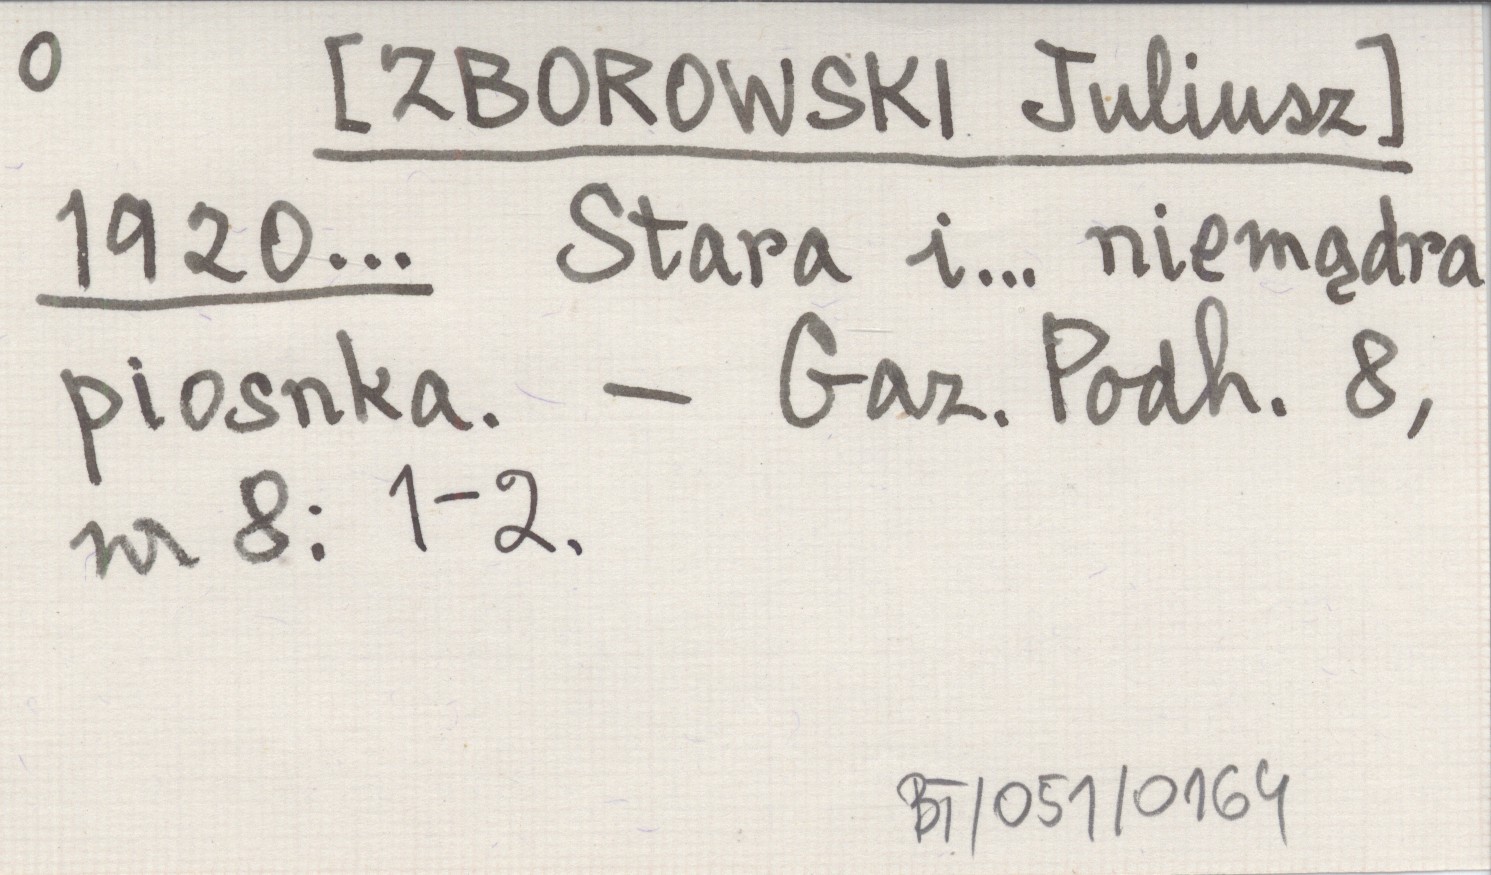 0 [ZBOROWSKI Juliusz]
1920... Stara i... niemądra
piosnka. – Gaz. Podh. 8,
nr 8: 1-2.
BT/051/0164